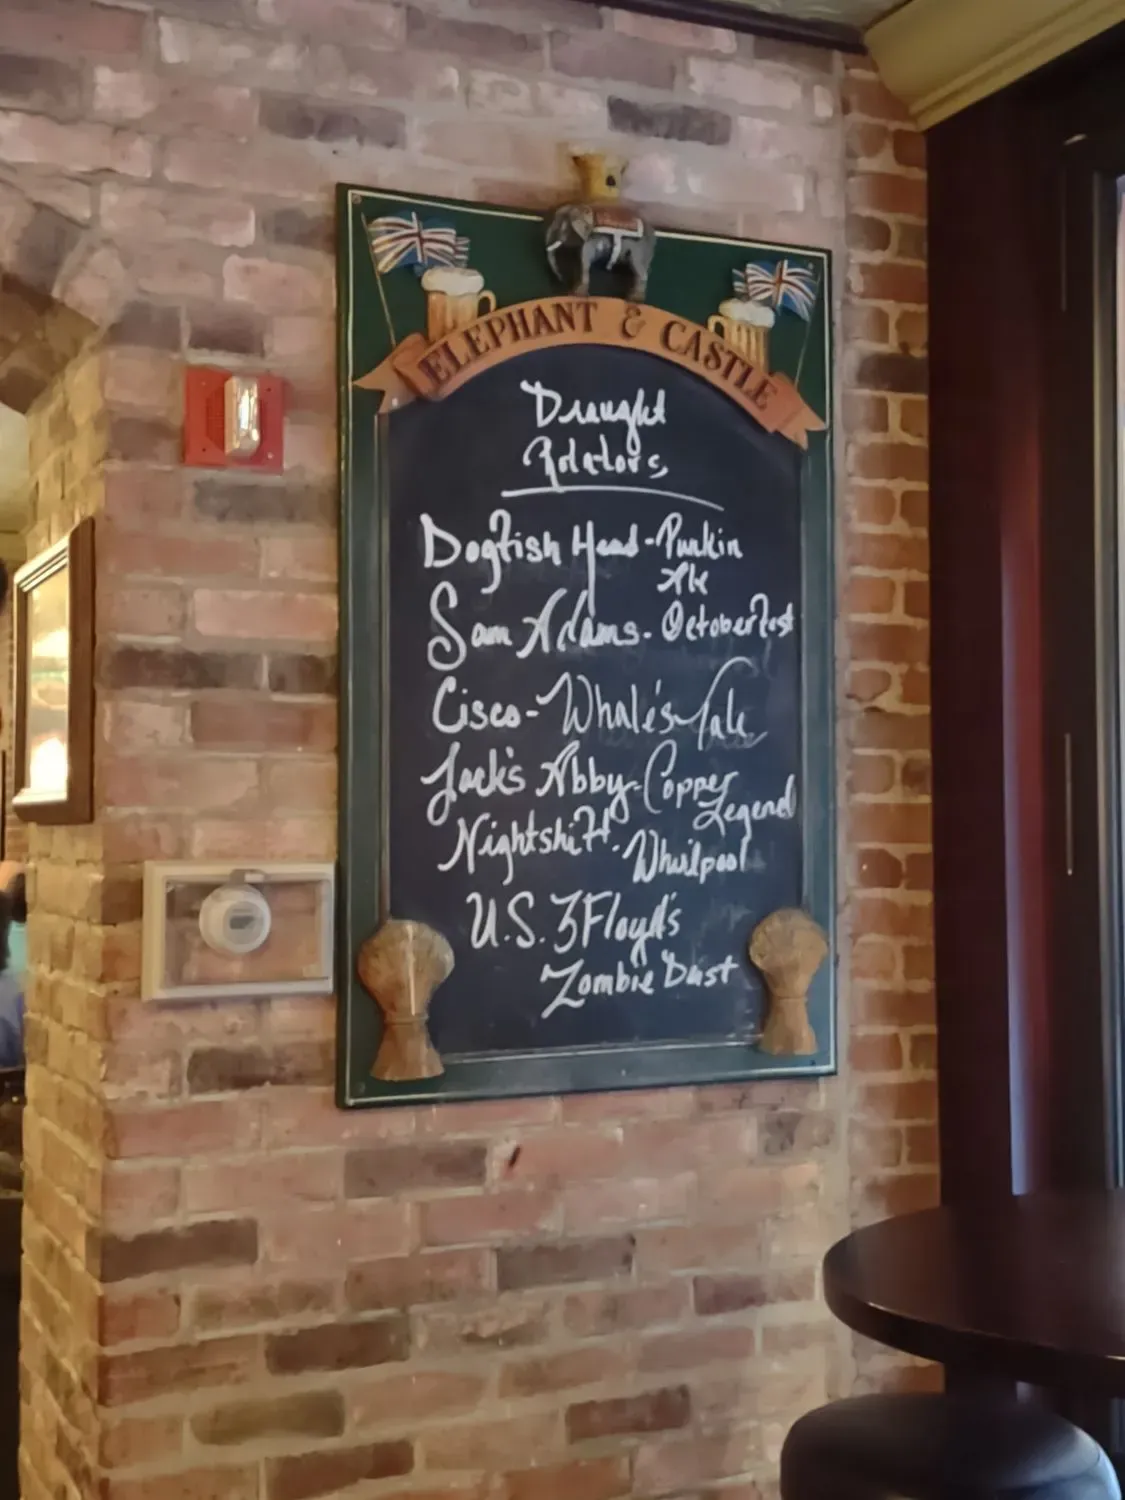 ELEPHANT & CASTLE
Draught
Rotators
Dogfish Head - Punkin
Ale
Sam Adams - Octoberfest
Cisco - Whale's Tale
Jack's Abby - Copper
Legend
Nightshift - Whirlpool
U.S. 3Floyd's
Zombie Dust